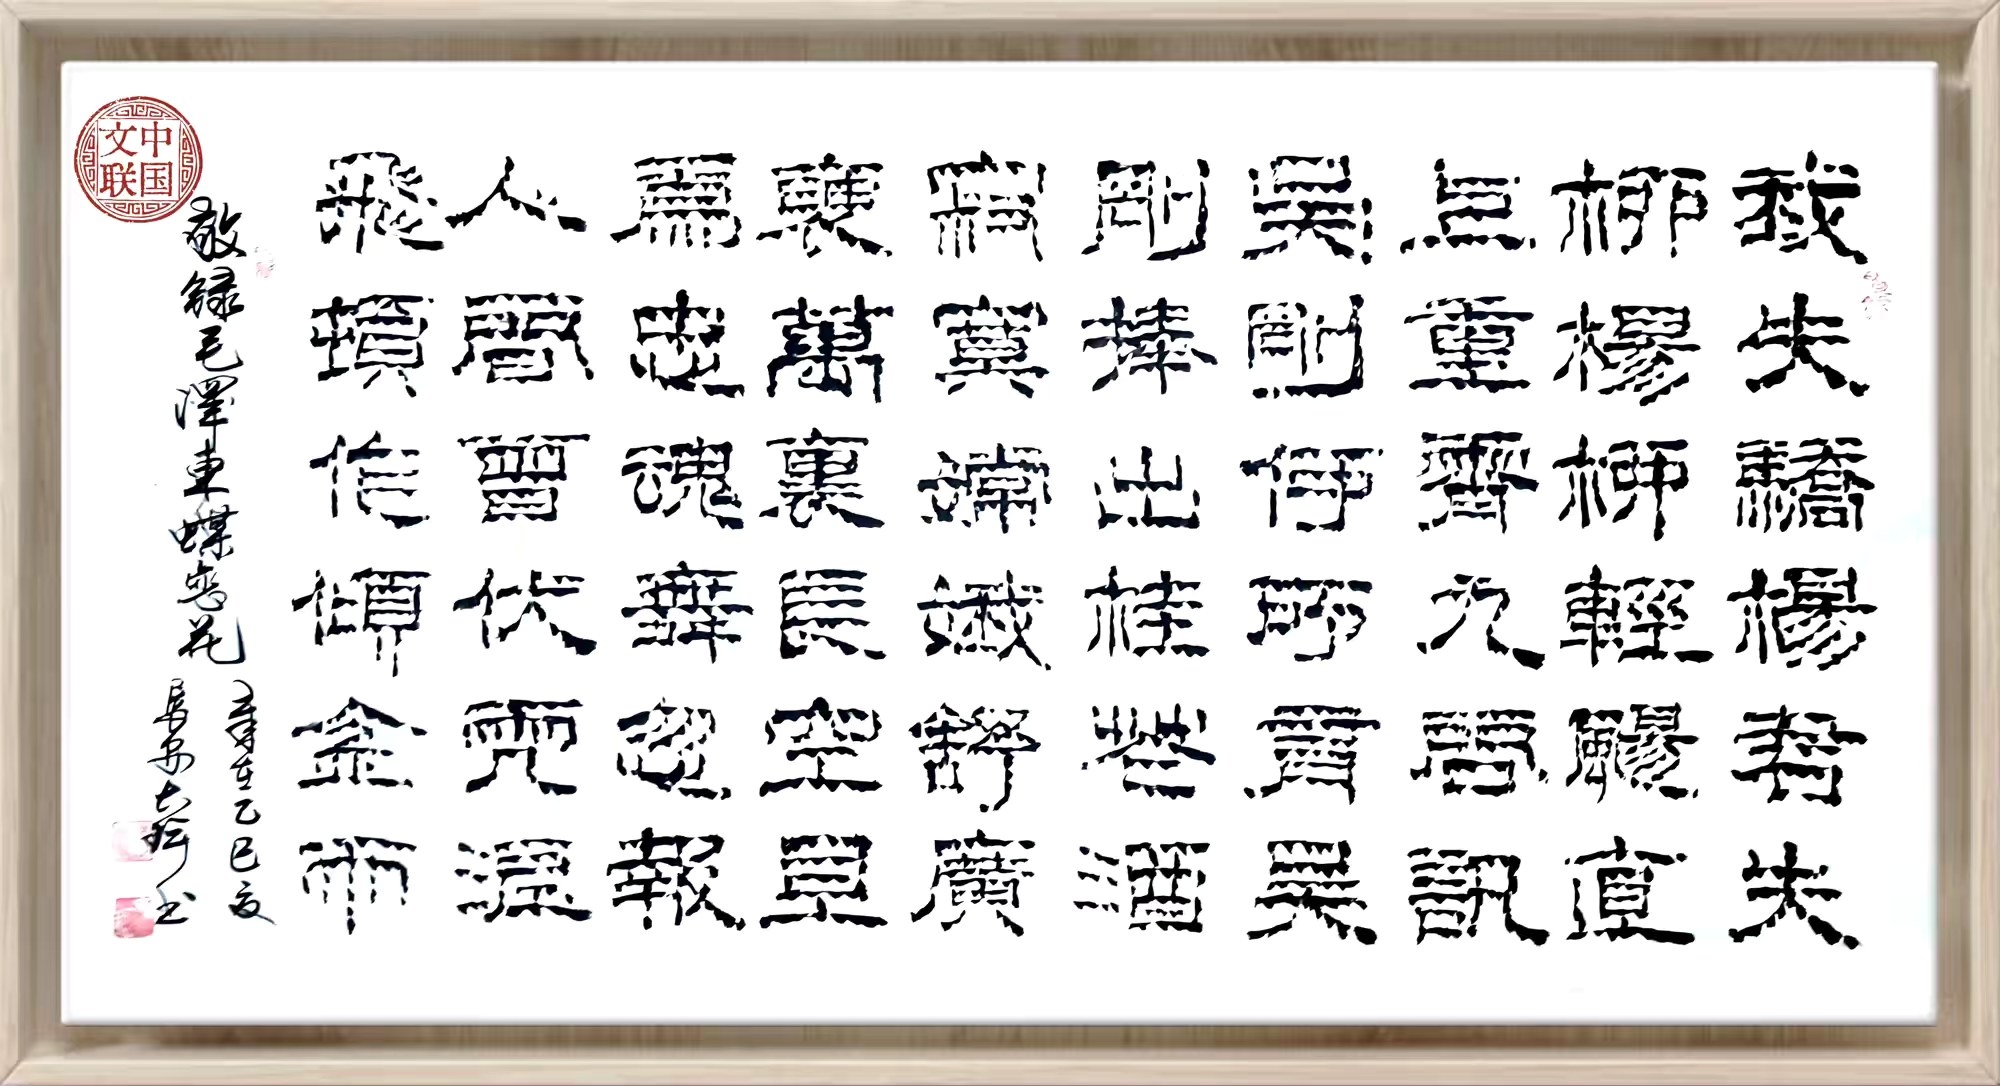 我失驕楊君失
柳楊柳輕颺直
上重霄九問訊
吳剛何所有吳
剛捧出桂花酒
寂寞嫦娥舒廣
袖萬裏長空且
為忠魂舞忽報
人間曾伏虎淚
飛頓作傾盆雨
敬録毛澤東蝶恋花
歲在乙巳夏
书
中国文联